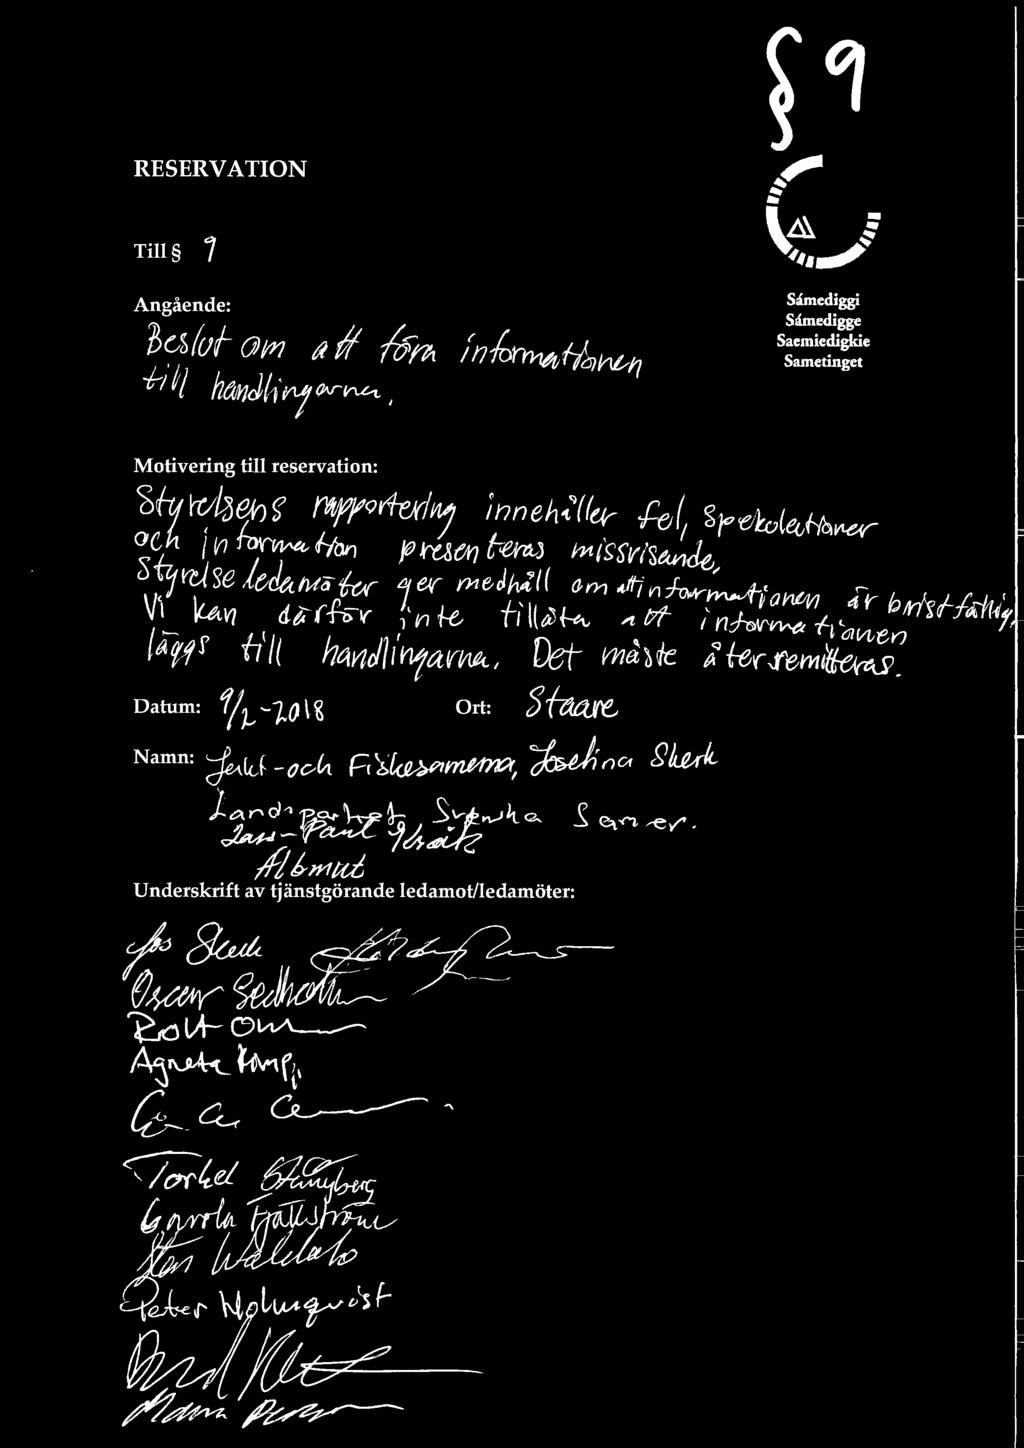 § 9
RESERVATION
Till § 9
Sámediggi
Sámedigge
Saemiedigkie
Sametinget
Angående:
Beslut om att föra informationen
till handlingarna.
Motivering till reservation:
Styrelsens rapportering innehåller fel, spekulationer
och information presenteras missvisande,
Styrelseledamöter ger medhåll om att informationen är bristfällig,
Vi kan därför inte tillåta att informationen
läggs till handlingarna. Det måste återremitteras.
Datum: 9/2-2018 Ort: Staare
Namn: Jakt-och Fiskesamerna, Josefina Skerk
Landspartiet Svenska Samer.
Lars-Paul
Albmut
Underskrift av tjänstgörande ledamot/ledamöter:
Jos Skerk
Oscar Sedholm
Agneta
Torkel Stångberg
Carola Fjällström
Peter Holmqvist